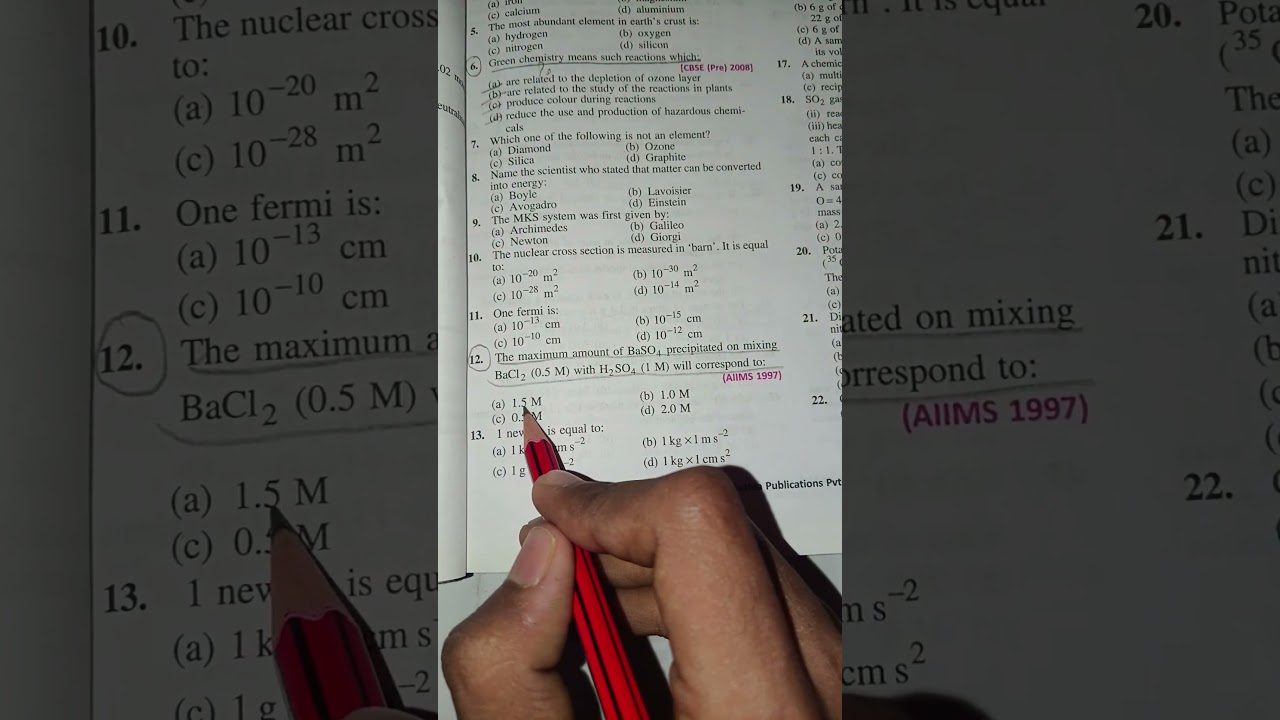 (c) calcium (d) aluminium
5. The most abundant element in earth's crust is:
(a) hydrogen (b) oxygen
(c) nitrogen (d) silicon
6. Green chemistry means such reactions which:
[CBSE (Pre) 2008]
(a) are related to the depletion of ozone layer
(b) are related to the study of the reactions in plants
(c) produce colour during reactions
(d) reduce the use and production of hazardous chemi-
cals
7. Which one of the following is not an element?
(a) Diamond (b) Ozone
(c) Silica (d) Graphite
8. Name the scientist who stated that matter can be converted
into energy:
(a) Boyle (b) Lavoisier
(c) Avogadro (d) Einstein
9. The MKS system was first given by:
(a) Archimedes (b) Galileo
(c) Newton (d) Giorgi
10. The nuclear cross section is measured in 'barn'. It is equal
to:
(a) 10⁻²⁰ m² (b) 10⁻³⁰ m²
(c) 10⁻²⁸ m² (d) 10⁻¹⁴ m²
11. One fermi is:
(a) 10⁻¹³ cm (b) 10⁻¹⁵ cm
(c) 10⁻¹⁰ cm (d) 10⁻¹² cm
12. The maximum amount of BaSO₄ precipitated on mixing
BaCl₂ (0.5 M) with H₂SO₄ (1 M) will correspond to:
(AIIMS 1997)
(a) 1.5 M (b) 1.0 M
(c) M (d) 2.0 M
13. 1 is equal to:
(a) m s⁻² (b) 1 kg × 1 m s⁻²
(c) 1 g (d) 1 kg × 1 cm s²
Publications Pvt
(b) 6 g of
22 g of
(c) 6 g of
(d) A sam
its vol
17. A chemic
(a) multi
(c) recip
18. SO₂ gas
(ii) rea
(iii) hea
each ca
1 : 1. T
(a) co
(c) co
19. A sa
O = 4
mass
(a) 2.
(c) 0
20. Pota
(³⁵
The
(a)
(c)
21. Di
nit
(a
22.
10. The nuclear cross
to:
(a) 10⁻²⁰ m²
(c) 10⁻²⁸ m²
11. One fermi is:
(a) 10⁻¹³ cm
(c) 10⁻¹⁰ cm
12. The maximum a
BaCl₂ (0.5 M)
(a) 1.5 M
(c) 0. M
13. 1 is equ
(a) 1 k cm s
(c) 1 g
ated on mixing
orrespond to:
(AIIMS 1997)
m s⁻²
cm s²
20. Pota
(³⁵
The
(a)
(c)
21. Di
nit
(a
(b
22.